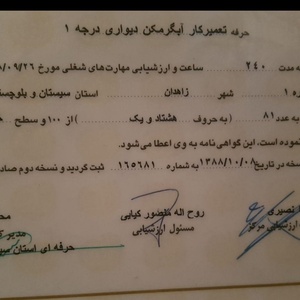 حرفه تعمیرکار آبگرمکن دیواری درجه ۱
مدت ۲۴۰ ساعت و ارزشیابی مهارت‌های شغلی مورخ ۰۹/۲۶/
۱ شهر زاهدان استان سیستان و بلوچست
عدد ۸۱ (به حروف هشتاد و یک) از ۱۰۰ و سطح
نموده است. این گواهی نامه به وی اعطا می‌شود.
نسخه در تاریخ ۱۳۸۸/۱۰/۰۸ به شماره ۱۶۵۶۸۱ ثبت گردید و نسخه دوم صاد
نصیری روح اله منصور کیایی مح
ارزشیابی مرکز مسئول ارزشیابی مدیر
حرفه ای استان سیس